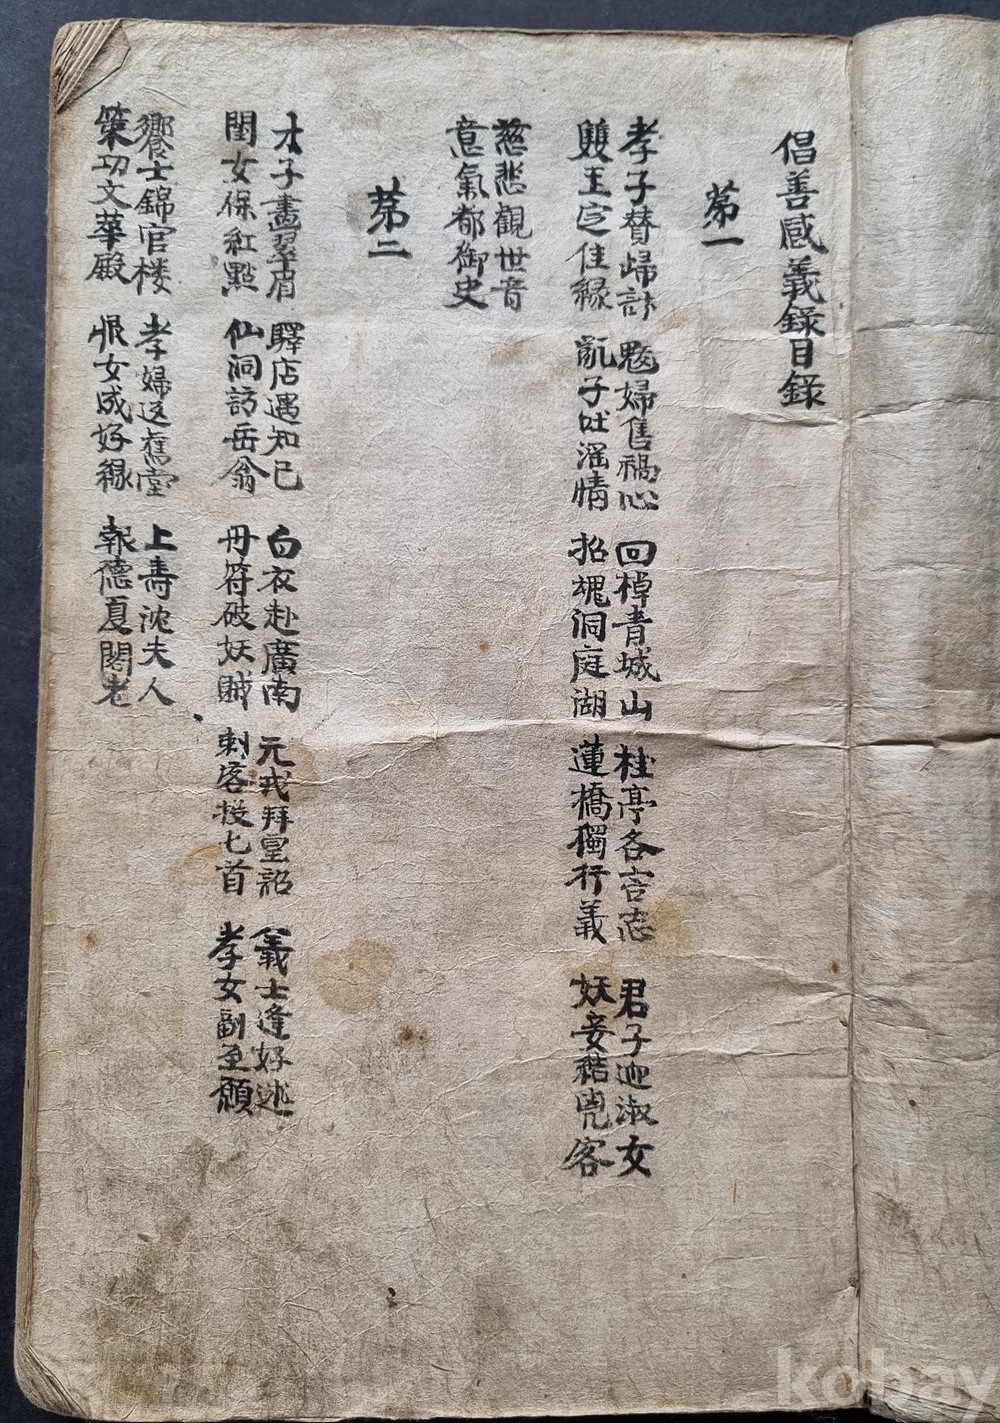 倡善感義錄目錄
第一
孝子贊歸計 魃婦售禍心 回棹青城山 桂亭各言志 君子迎淑女
雙玉定佳緣 亂子吐滛情 招魂洞庭湖 蓮橋獨行義 妖妾結兇客
慈悲觀世音
意氣都御史
第二
才子畵翠眉 驛店遇知已 白衣赴廣南 元戎拜皇詔 義士逢好逑
閨女保紅點 仙洞訪岳翁 丹符破妖賊 刺客投匕首 孝女副至願
饗士錦官楼 孝婦返舊堂 上壽沈夫人
策功文華殿 恨女成好緣 報德夏閣老
kobay